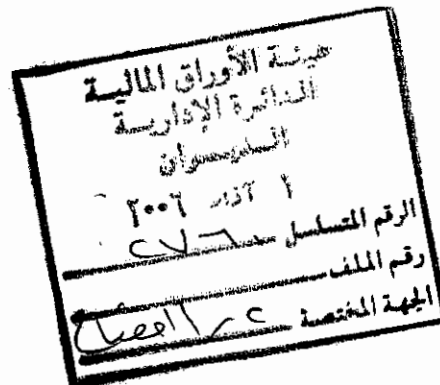 هيئة الأوراق المالية
الدائرة الإدارية
الديوان
١ آذار ٢٠٠٦
الرقم المتسلسل ٢٧٦٠
رقم الملف
الجهة المختصة